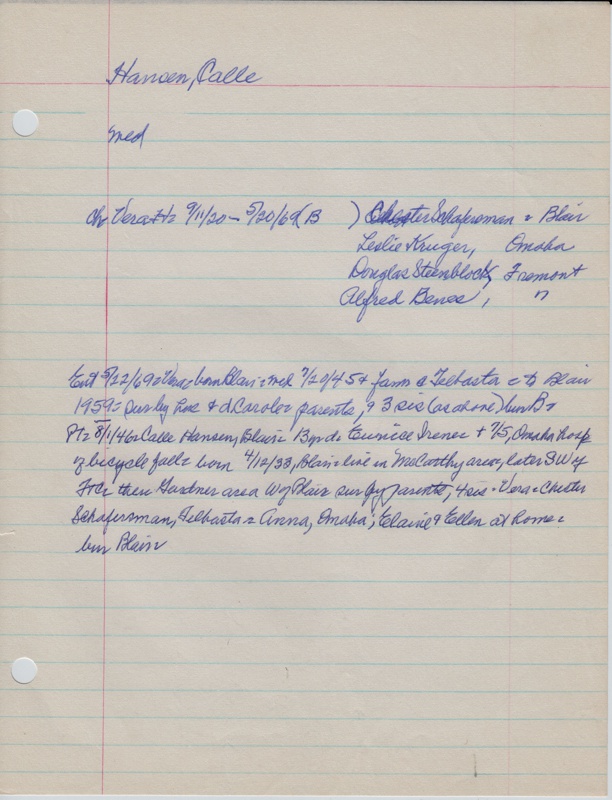 Hansen, Calle
med
Ch Vera H= 9/11/20 - 5/20/69 (B ) Chester Schafersman = Blair
Leslie Kruger, Omaha
Douglas Steenblock, Fremont
Alfred Benes, "
Ent 5/22/69= Vera= born Blair= md 7/20/45 & farm @ Telbasta = to Blair
1959= sur by hus & d Carole= parents, & 3 sis (as above) bur B=
Pt= 8/1/46= Calle Hansen, Blair= 13 yr d= Eunice Irene= + 7/5, Omaha hosp
of bicycle fall= born 4/12/33, Blair= live in McCarthy area, later SW of
then Gardner area W of Blair= sur by parents, 4 sis= Vera= Chester
Schafersman, Telbasta= Anna, Omaha; Elaine & Ellen at home=
bur Blair=